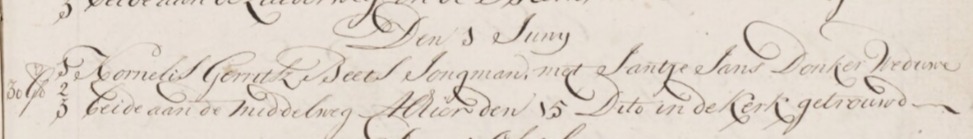 beide aan de
Den 3 Juny
Kornelis Gerritz Beets Jongman, met Jantje Jans Donker Weduwe
beide aan de middelweg Alhier den 15 Dito in de Kerk getrouwd